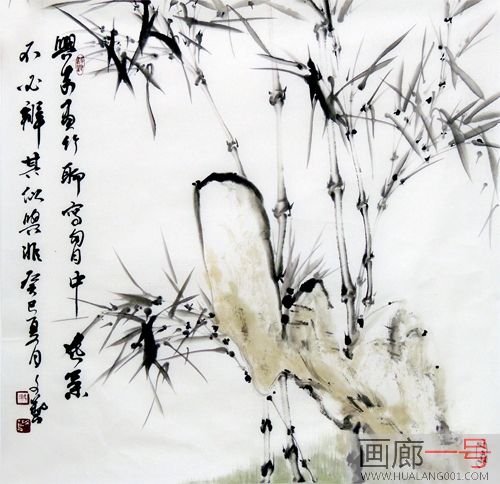 興来画竹聊寫胷中逸氣
不必辨其似與非癸巳夏月文
画廊一号
WWW.HUALANG001.COM